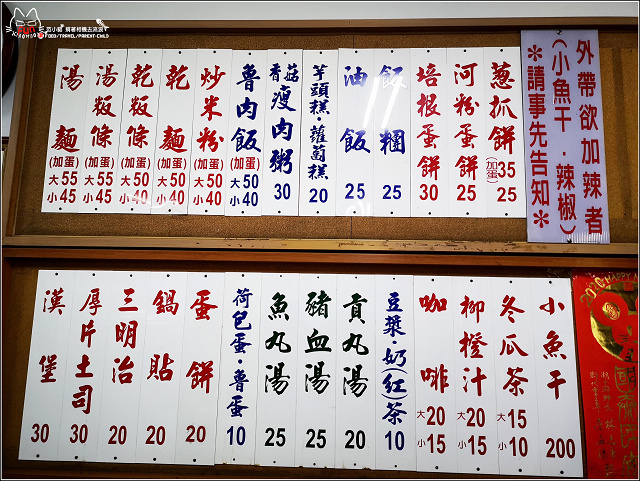 小貓 揹著相機去流浪
FOOD/TRAVEL/PARENT-CHILD
外帶欲加辣者
(小魚干．辣椒)
＊請事先告知＊
蔥抓餅 (加蛋)35 25
河粉蛋餅 25
培根蛋餅 30
飯糰 25
油飯 25
芋頭糕·蘿蔔糕 20
香菇瘦肉粥 30
魯肉飯 (加蛋) 大50 小40
炒米粉 (加蛋) 大50 小40
乾麵 (加蛋) 大50 小40
乾粄條 (加蛋) 大50 小40
湯粄條 (加蛋) 大55 小45
湯麵 (加蛋) 大55 小45
小魚干 200
冬瓜茶 大15 小10
柳橙汁 大20 小15
咖啡 大20 小15
豆漿·奶(紅)茶 10
貢丸湯 20
豬血湯 25
魚丸湯 25
荷包蛋·魯蛋 10
蛋餅 20
鍋貼 20
三明治 20
厚片土司 30
漢堡 30